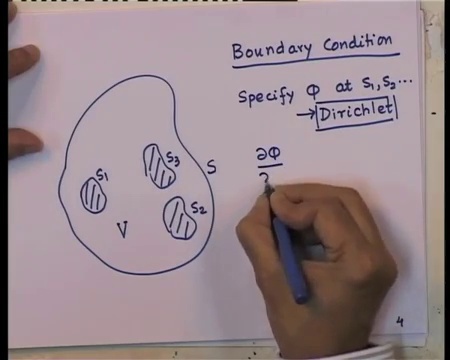 Boundary Condition
Specify Φ at S1, S2...
→ Dirichlet
∂Φ
∂
S1
S3
S
S2
V
4